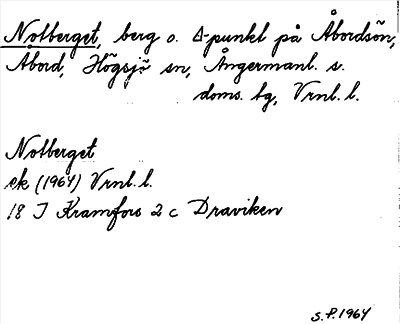 Notberget, berg o. Δ-punkt på Åbordsön,
Åbord, Högsjö sn, Ångermanl. s.
doms. tg, Vrnl. l.
Notberget
ek (1964) Vrnl. l.
18 I Kramfors 2 c Draviken
S.P. 1964